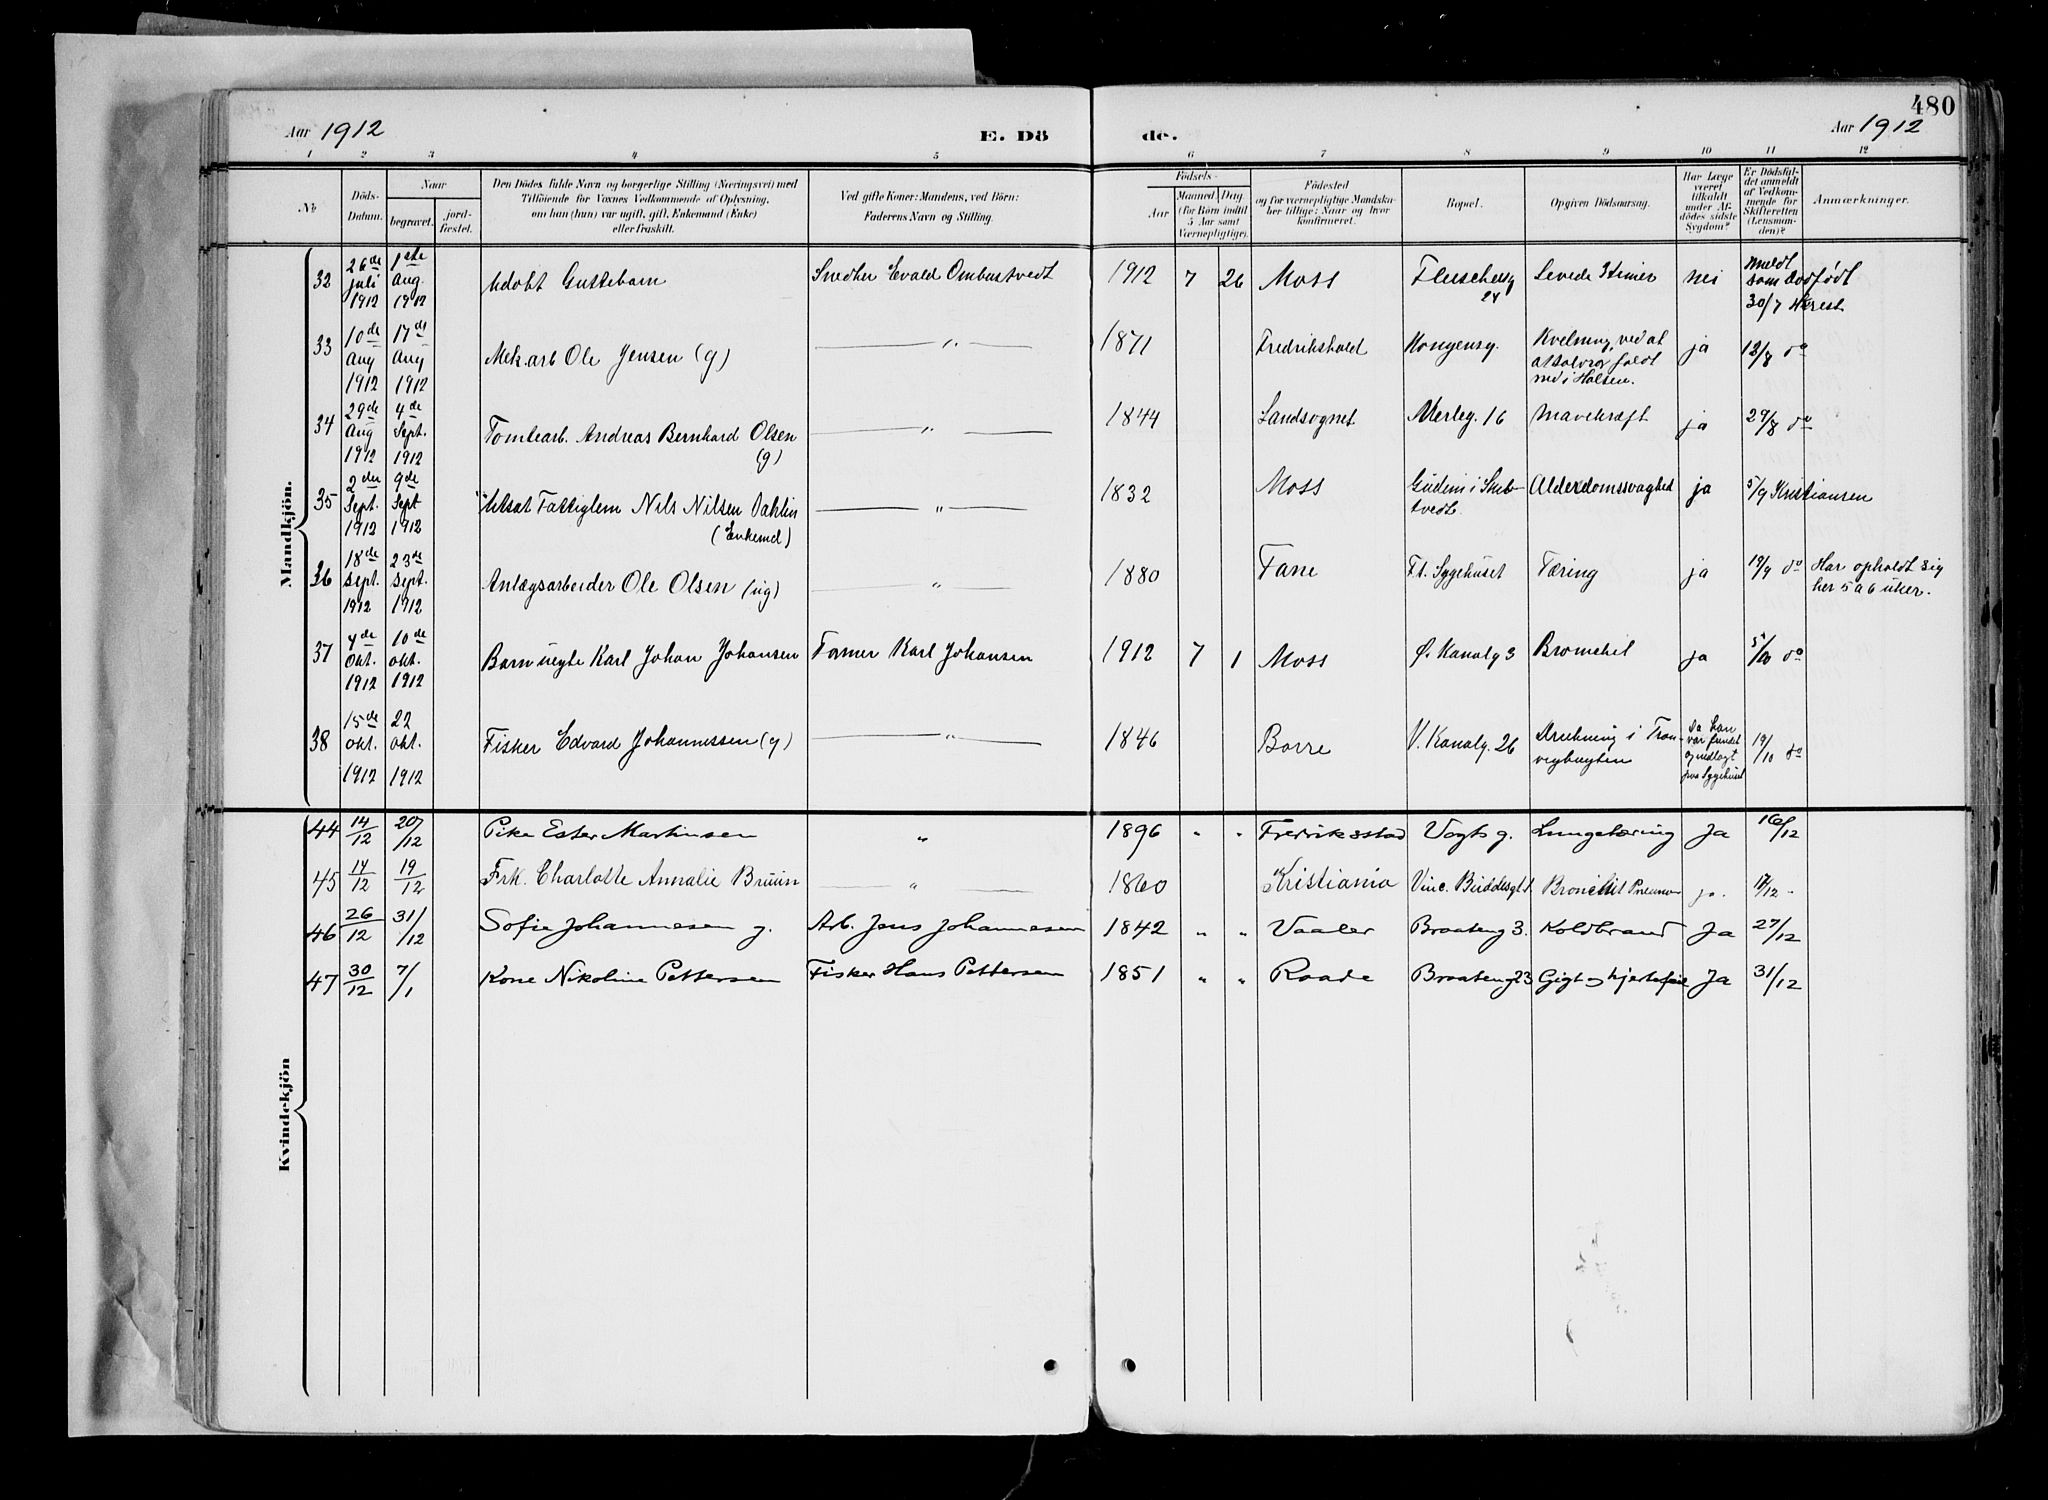 480
Aar 1912
E. Dö
de.
Aar 1912
1 2 3 4 5 6 7 8 9 10 11 12
No
Döds-Datum.
Naar
begravet.
jord-fæstet.
Den Dödes fulde Navn og borgerlige Stilling (Næringsvei) med
Tilföiende for Voxnes Vedkommende af Oplysning,
om han (hun) var ugift, gift, Enkemand (Enke)
eller fraskilt.
Ved gifte Koner: Mandens, ved Börn:
Faderens Navn og Stilling.
Födsels-
Aar
Maaned Dag
(for Börn indtil
5 Aar samt
Værnepligtige).
Födested
og for værnepligtige Mandska-
ber tillige: Naar og hvor
konfirmeret.
Bopæl.
Opgiven Dödsaarsag.
Har Læge
været
tilkaldt
under Af-
dödes sidste
Sygdom?
Er Dödsfal-
det anmeldt
af Vedkom-
mende for
Skifteretten
(Lensman-
den)?
Anmærkninger.
Mandkjön.
32 26de juli 1912 1ste Aug. 1912 Udøbt Guttebarn Snedker Evald Ombustvedt 1912 7 26 Moss 24 Levede 3 timer nei meldt som dødfødt 30/7
33 10de Aug 1912 17de Aug 1912 Mek.arb Ole Jensen (g) — " — 1871 Fredrikshald Kongensg. Kvelning, ved at faldt ned i Halsen. ja 12/8 do
34 29de Aug 1912 4de Sept. 1912 Tomtearb. Andreas Bernhard Olsen (g) — " — 1844 Landsognet 16 Mavekræft ja 29/8 do
35 2den Sept. 1912 9de Sept 1912 Utsat Fattiglem Nils Nilsen Dahlin (Enkemd) — " — 1832 Moss Gudem i Alderdomssvaghed ja 5/9 Kristiansen
36 18de Sept. 1912 23de Sept. 1912 Anlægsarbeider Ole Olsen (ug) — " — 1880 Fane Ft. Sygehuset Tæring ja 19/9 do Har opholdt sig her 5 a 6 uker.
37 4de Okt. 1912 10de okt. 1912 Barn Karl Johan Johansen Karl Johansen 1912 7 1 Moss Ø. Kanalg 3 Bronchit ja 5/10 do
38 15de okt. 1912 22 okt. 1912 Fisker Edvard Johannessen (g) — " — 1846 Borre V. Kanalg. 26 Drukning i Da han var fundet og nedlagt paa Sygehuset 19/10 do
Kvindekjön
44 14/12 20/12 Pike Ester Martinsen " 1896 " " Fredriksstad Vogts g. Lungetæring Ja 16/12
45 14/12 19/12 Frk. Charlotte Annalie Bruun — " — 1860 Kristiania Vinc. Buddesgt 1 Bronchit Pneumo ja. 17/12 -
46 26/12 31/12 Sofie Johannesen g. Arb. Jens Johannesen 1842 " " Vaaler Braateng 3. Koldbrand Ja 27/12
47 30/12 7/1 Kone Nikoline Pettersen Fisker Hans Pettersen 1851 " " Raade Braateng 23 Gigt og hjertefeil Ja 31/12